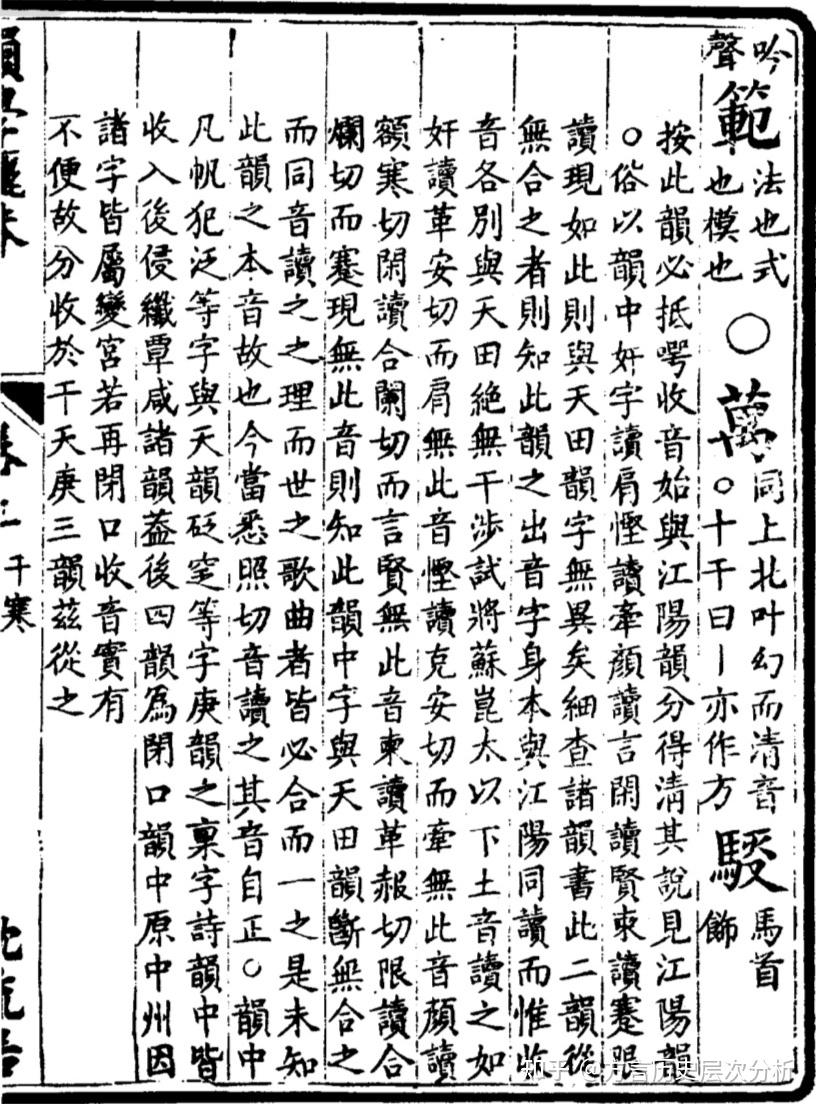 吟聲範法也式也模也○萬同上北叶幻而清音○十千曰丨亦作方騣馬首飾
按此韻必抵㗁收音始與江陽韻分得清其說見江陽韻
○俗以韻中奸字讀肩慳讀牽顏讀言閑讀賢柬讀蹇限
讀現如此則與天田韻字無異矣細查諸韻書此二韻從
無合之者則知此韻之出音字身本與江陽同讀而惟收
音各別與天田絕無干涉試將蘇崑太以下土音讀之如
奸讀革安切而肩無此音慳讀克安切而牽無此音顏讀
額寒切閑讀合闌切而言賢無此音柬讀革赧切限讀合
爛切而蹇現無此音則知此韻中字與天田韻斷無合之
而同音讀之之理而世之歌曲者皆必合而一之是未知
此韻之本音故也今當悉照切音讀之其音自正○韻中
凡帆犯泛等字與天韻砭窆等字庚韻之稟字詩韻中皆
收入後侵纖覃咸諸韻蓋後四韻為閉口韻中原中州因
諸字皆屬變宮若再閉口收音實有
不便故分收於干天庚三韻茲從之
干寒
知乎 @方言历史层次分析